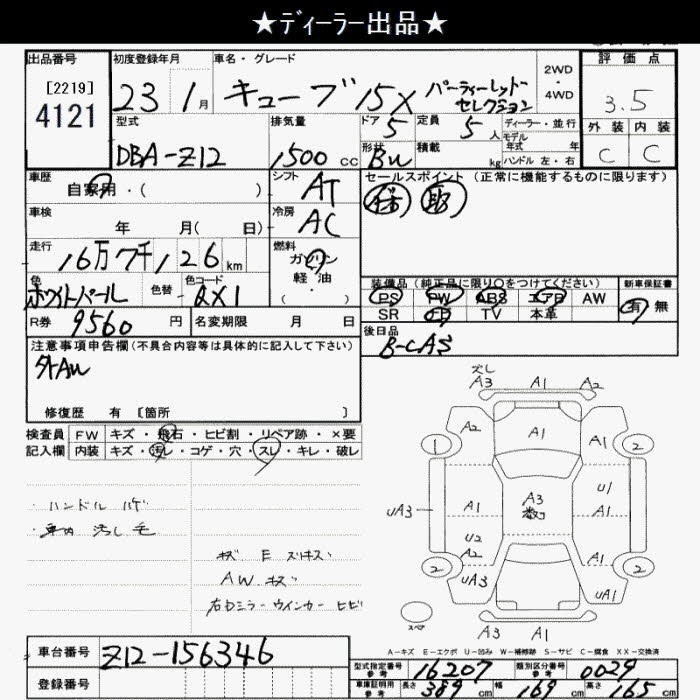 ★ディーラー出品★
出品番号
[2219]
4121
初度登録年月
23 1月
車名・グレード
キューブ 15X パーティーレッド セレクション
2WD
・
4WD
評価点
3.5
外装 内装
C C
型式
DBA-Z12
排気量
1500 cc
ドア
5
定員
5 人
ディーラー・並行
モデル
年式 年
形状
Bw
積載
kg
ハンドル 左・右
車歴
自家用・( )
シフト
AT
セールスポイント (正常に機能するものに限ります)
車検
年 月( 日)
冷房
AC
走行
16万7千126 km
燃料
ガソリン
軽・油
( ・ )
色
ホワイトパール
色替
色コード
QX1
装備品 (純正品に限り○をつけてください)
新車保証書
PS PW ABS エアB AW
SR CD TV 本革
有 無
R券
9560 円
名変期限 月 日
後日品
B-CAS
注意事項申告欄 (不具合内容等は具体的に記入して下さい)
外AW
修復歴 有 [箇所 ]
検査員
記入欄
FW キズ・飛石・ヒビ割・リペア跡・×要
内装 キズ・汚レ・コゲ・穴・スレ・キレ・破レ
・ハンドル ハゲ
・車内 汚レ 毛
キズ E スリキズ
AW キズ
右ドミラーウインカー ヒビ
A3 A1 A2
A2 A1
1 2
A3
U1
A1 A1
UA3
U2
A2 A1
2 UA3 A1 UA3 2
スペア
A3 A1
A-キズ E-エクボ U-凹み W-補修跡 S-サビ C-腐食 XX-交換済
車台番号
Z12-156346
登録番号
型式指定番号
参考
16207
類別区分番号
参考
0029
車庫証明用
参考
長さ 389 cm
幅 169 cm
高さ 165 cm